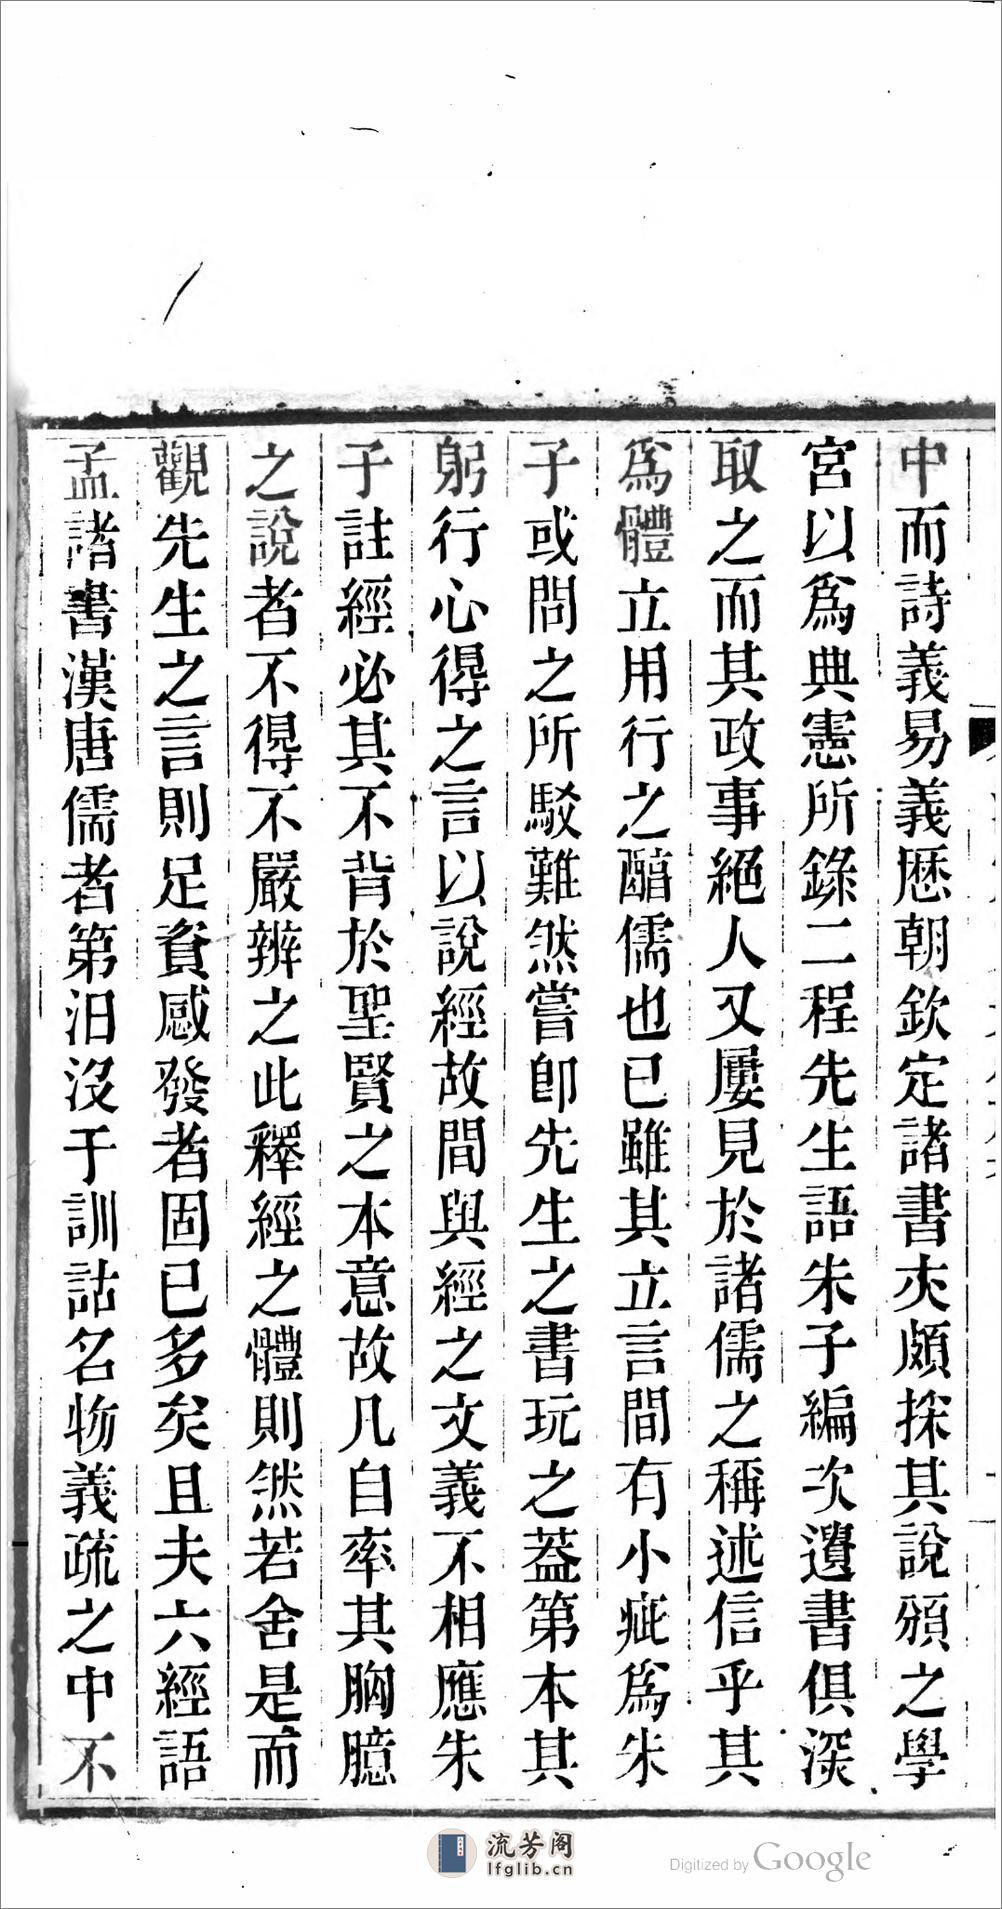 中而詩義易義歷朝欽定諸書亦頗採其說頒之學
宮以爲典憲所錄二程先生語朱子編次遺書俱深
取之而其政事絕人又屢見於諸儒之稱述信乎其
爲體立用行之醕儒也已雖其立言間有小疵爲朱
子或問之所駁難然嘗卽先生之書玩之蓋第本其
躬行心得之言以說經故間與經之文義不相應朱
子註經必其不背於聖賢之本意故凡自率其胸臆
之說者不得不嚴辨之此釋經之體則然若舍是而
觀先生之言則足資感發者固已多矣且夫六經語
孟諸書漢唐儒者第汨沒于訓詁名物義疏之中不
流芳阁
lfglib.cn
Digitized by Google